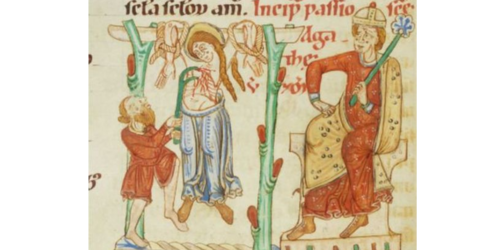 scła scłoꝝ am̄. Incip̄ passio sc̄e
Aga
the